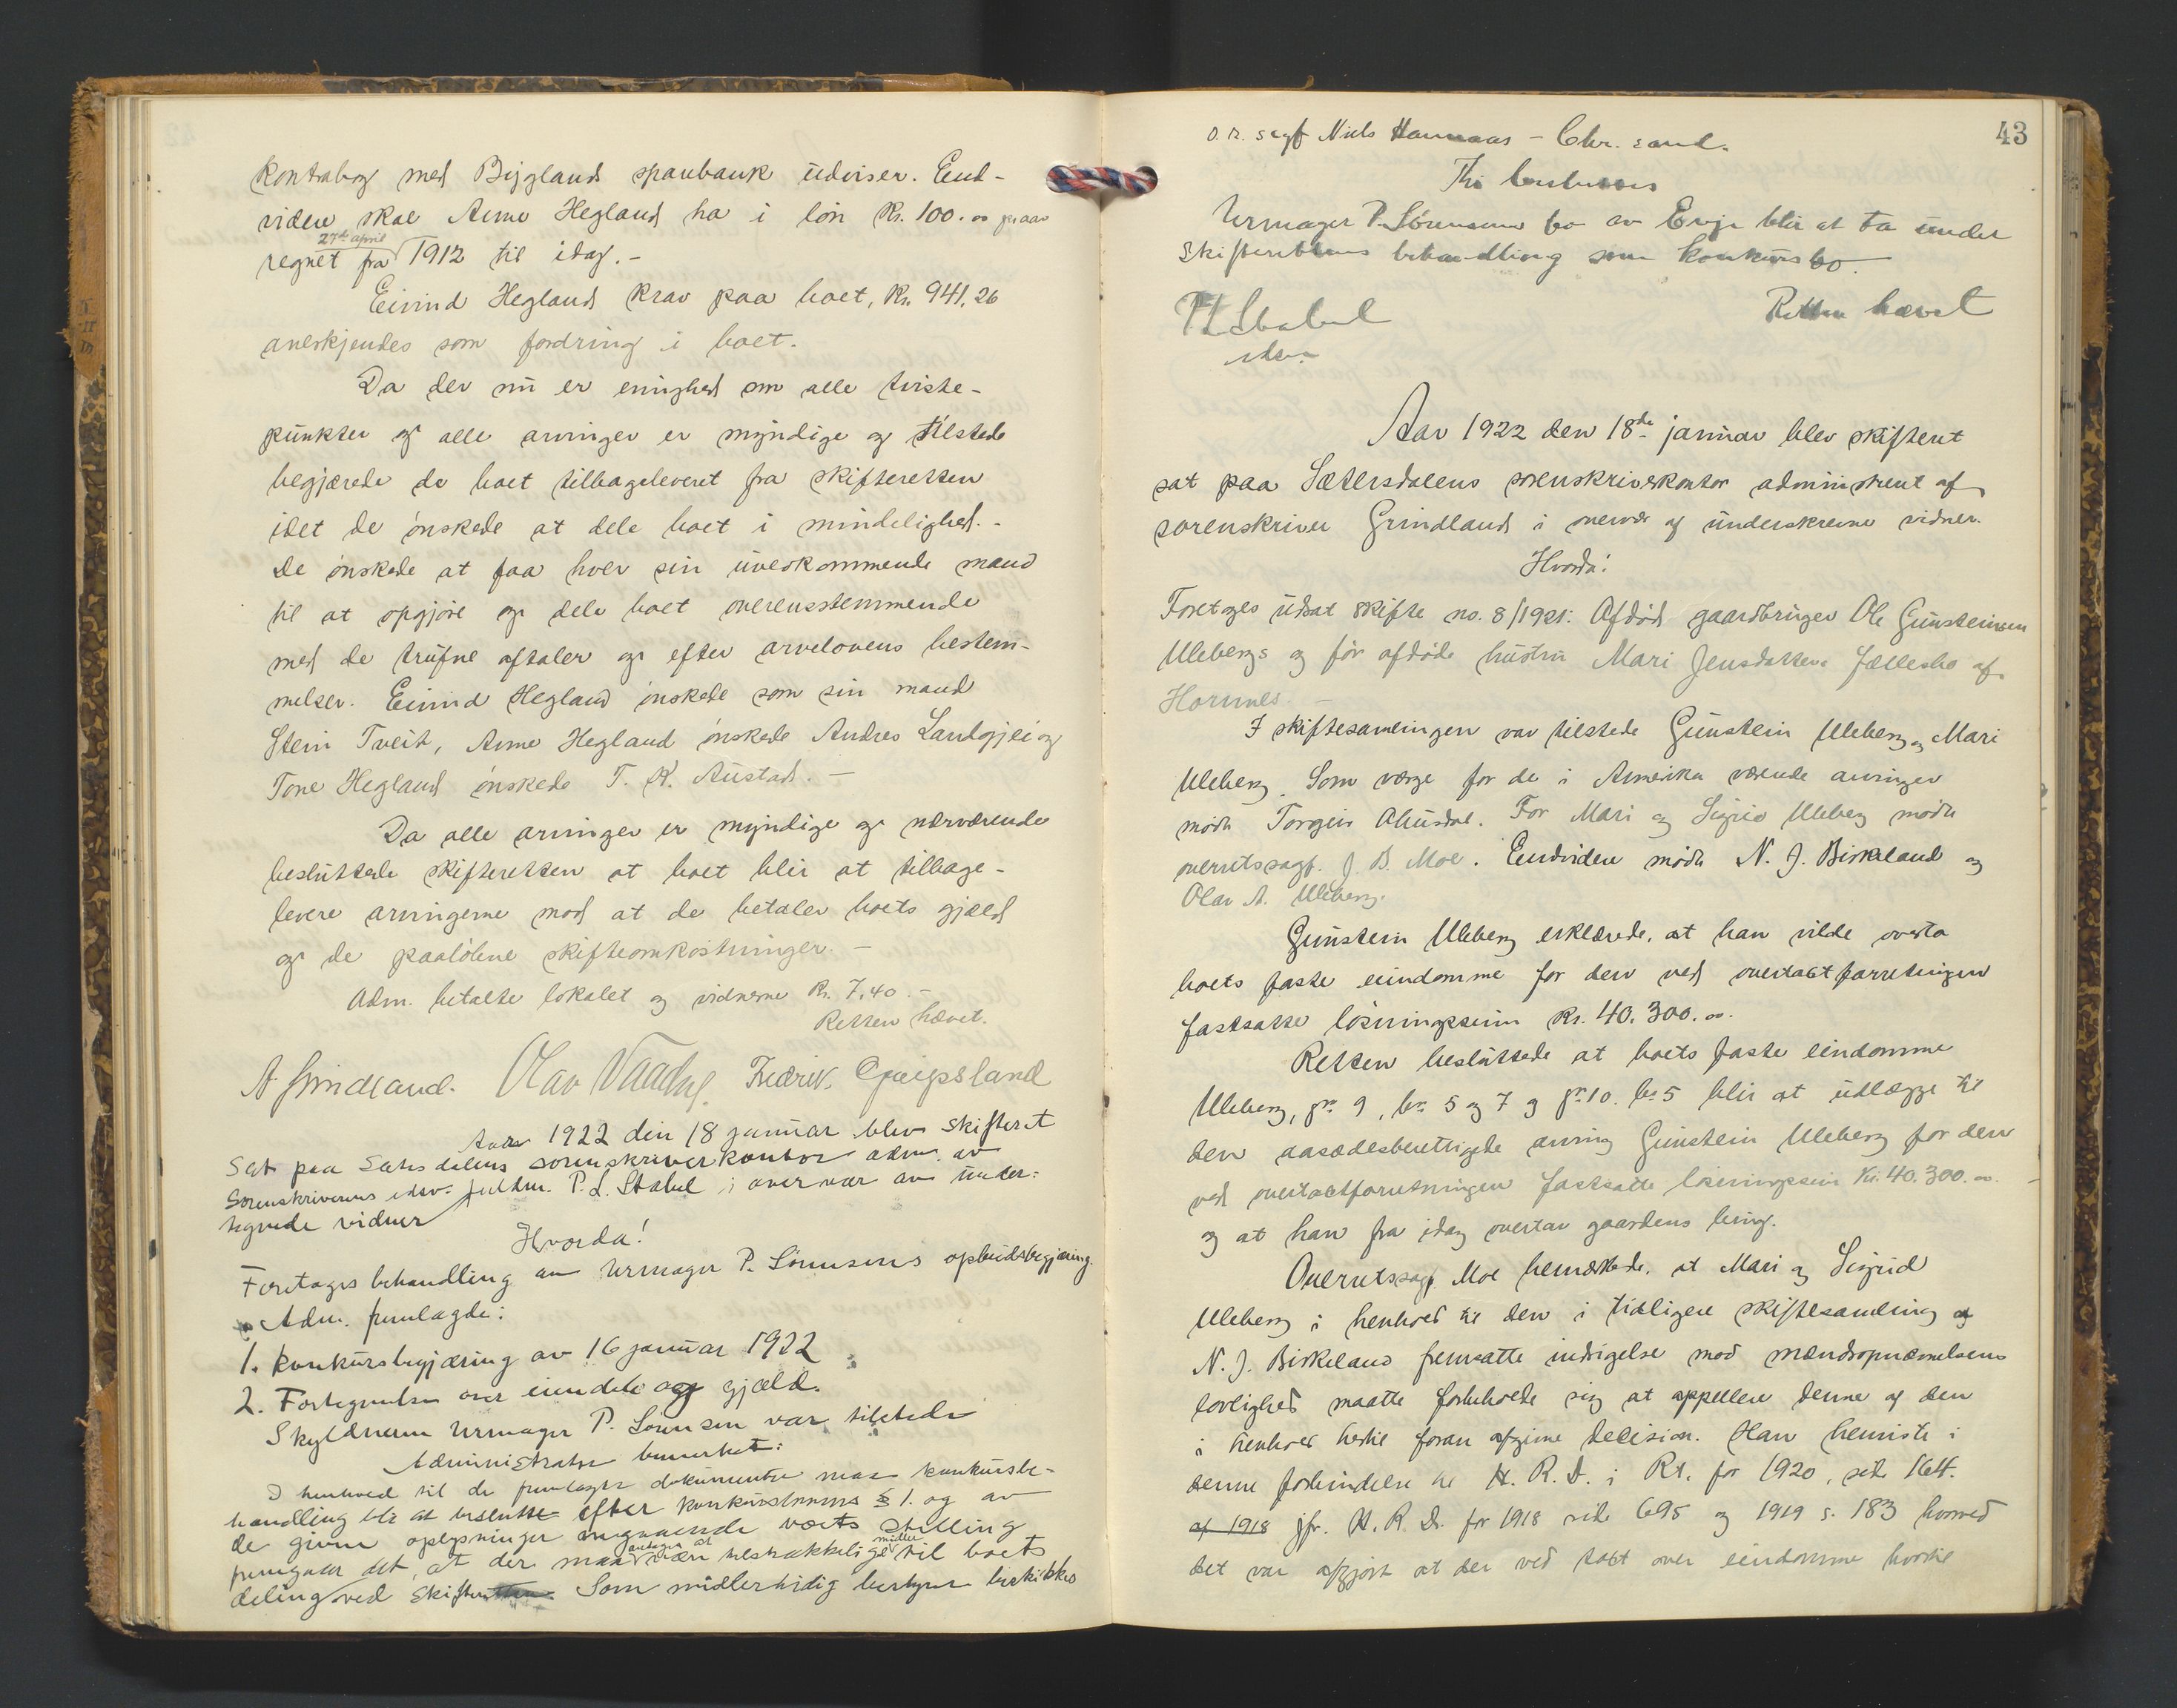 kontrabog med Bygland sparebank udviser. End-
videre skal Anne Hegland ha i løn Kr. 100.00 pr aar
27de april
regnet fra 1912 til idag.-
Eivind Hegland krav paa boet, Kr. 941,26
anerkjendes som fordring i boet.
Da der nu er enighed om alle twiste-
punkter og alle arvinger er myndige og tilstede
begjærede de boet tilbageleveret fra skifteretten
idet de ønskede at dele boet i mindelighed.-
De ønskede at faa hver sin uvedkommende mand
til at opgjøre og dele boet overensstemmende
med de trufne aftaler og efter arvelovens bestem-
melser. Eivind Hegland ønskede som sin mand
Stein Tveit, Anne Hegland ønskede Andres Landgjei og
Tone Hegland ønskede T. K. Austad. -
Da alle arvinger er myndige og nærværende
besluttede skifteretten at boet blir at tilbage-
levere arvingerne mod at de betaler boets gjæld
og de paaløbne skifteomkostninger. -
Adm. betalte lokalet og vidnerne Kr. 7,40.-
Retten hævet.
A Grindland. Olav Fredrik Gjeipsland
Aar 1922 den 18 januar blev skifteret
sat paa Setesdalens sorenskriverkontor adm. av
Sorenskriverens edsv. fuldm. P. L. Stabel i overvær av under-
tegnede vidner
Hvorda!
Foretages behandling av Urmager P. Sörensens opbudsbegjæring.
Adm. fremlagde:
1. Konkursbegjæring av 16 januar 1922
2. Fortegnelse over eiendele og gjæld.
Skyldneren Urmager P. Sörensen var tilstede
Administrator bemerket:
I henhold til de fremlagte dokumenter maa konkursbe-
handling bli at beslutte efter konkurslovens § 1. og av
de givne oplysninger angaaende boets stilling
antages at midler
fremgaar det, at der maa være tilstrækkelige til boets
deling ved Skifteretten. Som midlertidig bestyrer beskikkes
43
O.r. sagf Niels Hannaas - Chr. sand.
Thi besluttes
Urmager P. Sörensens bo av Evje blir at ta under
Skifterettens behandling som konkursbo.
Retten hævet
P L Stabel
edsv.
Aar 1922 den 18de januar blev skifteret
sat paa Sætersdalens sorenskriverkontor administreret af
sorenskriver Grindland i overvær af underskrevne vidner.
Hvorda:
Foretoges udsat skifte no. 8/1921: Afdød gaardbruger Ole Gunsteinsen
Ulebergs og før afdøde hustru Mari Jensdatters fællesbo af
Hornnes. -
I skiftesamlingen var tilstede Gunstein Uleberg og Mari
Uleberg. Som værge for de i Amerika værende arvinger
mødte Torgeir Abusdal. For Mari og Sigrid Uleberg mødte
overretssagf. J. B. Moe. Endvidere mødte N. J. Birkeland og
Olav A. Uleberg.
Gunstein Uleberg erklærede, at han vilde overta
boets faste eiendomme for den ved overtaktforretningen
fastsatte løsningssum Kr. 40.300.00.
Retten besluttede at boets faste eiendomme
Uleberg, gr. 9, br. 5 og 7 og gr. 10. br. 5 blir at udlægge til
den aasædesberettigede arving Gunstein Uleberg for den
ved overtaktforretningen fastsatte løsningssum Kr. 40.300.00
og at han fra idag overtar gaardens brug.
Overretssagf. Moe bemærkede, at Mari og Sigrid
Uleberg i henhold til den i tidligere skiftesamling af
N. J. Birkeland fremsatte indsigelse mod mændsopnævnelsens
lovlighed maatte forbeholde sig at appellere denne og den
i henhold hertil foran afgivne decision. Han henviste i
denne forbindelse til H. R. D. i Rt. for 1920, side 164.
af 1918 jfr. H. R. D. for 1918 side 695 og 1919 s. 183 hvorved
det var afgjort at der ved takt over eiendomme hvortil